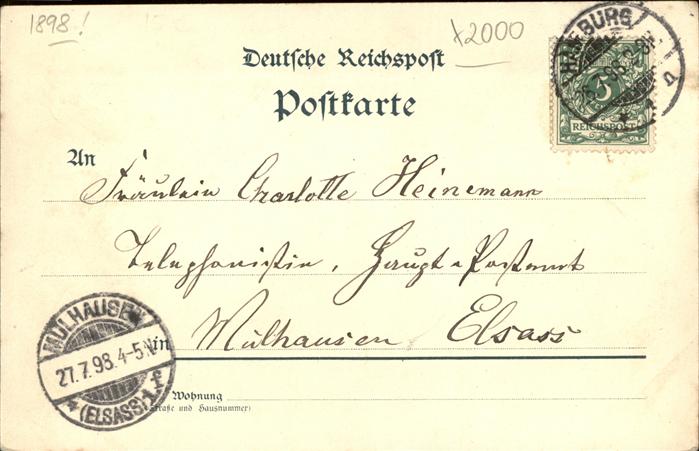 1898!
x2000
Deutsche Reichspost
Postkarte
5
REICHSPOST
An
Fräulein Charlotte Heinemann
Telephonistin, Haupt-Postamt
in Mülhausen Elsass
MÜLHAUSEN
27.7.98.4-5N
* (ELSASS) 1.f
Wohnung
(Straße und Hausnummer)